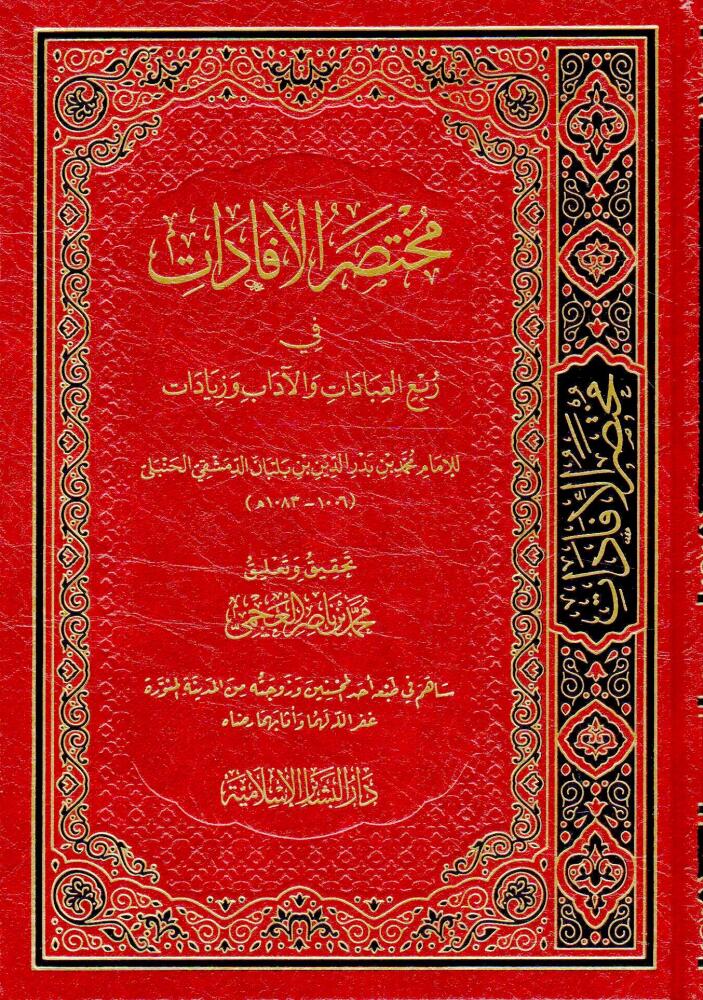 مُخْتَصَرُ الإِفَادَاتِ
فِي
رُبْعِ العِبَادَاتِ وَالآدَابِ وَزِيَادَات
للإِمَامِ مُحَمَّد بْن بَدْرِ الدِّينِ بْنِ بَلْبَانَ الدِّمَشْقِيِّ الحَنْبَلِي
(١٠٠٦ - ١٠٨٣ هـ)
تَحْقِيقُ وَتَعْلِيقُ
مُحَمَّد بْن نَاصِر العَجْمِي
سَاهَمَ فِي طَبْعِهِ أَحَدُ المُحْسِنِينَ وَزَوْجَتُهُ مِنَ المَدِينَةِ المُنَوَّرَةِ
غَفَرَ اللهُ لَهُمَا وَأَثَابَهُمَا رِضَاه
دَارُ البَشَائِرِ الإِسْلَامِيَّة
مُخْتَصَرُ الإِفَادَاتِ